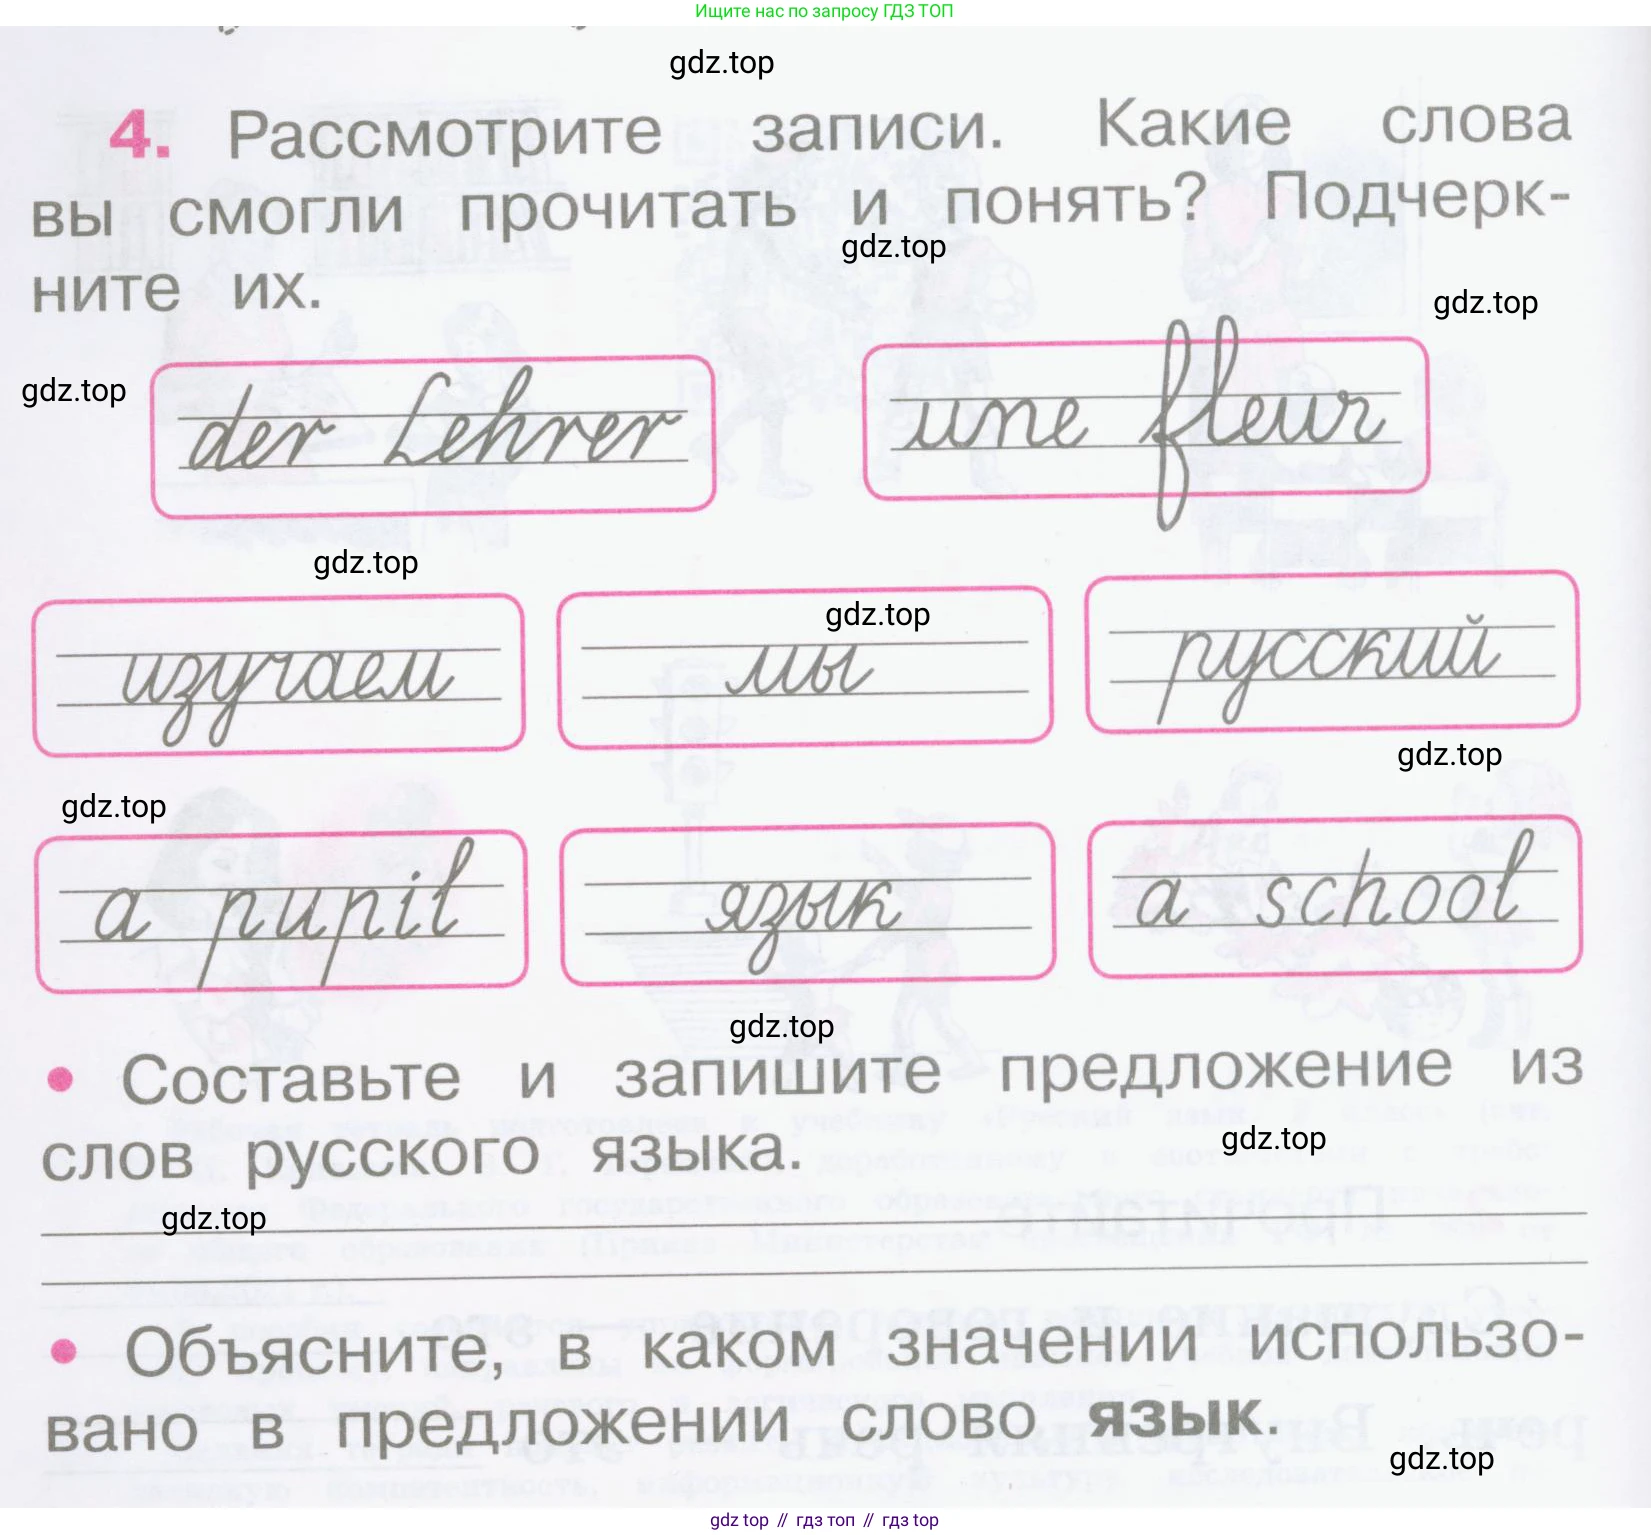 Ищите нас по запросу ГДЗ ТОП
gdz.top
4. Рассмотрите записи. Какие слова
вы смогли прочитать и понять? Подчерк-
gdz.top
ните их.
gdz.top
gdz.top
der Lehrer une fleur
gdz.top
gdz.top
изучаем мы русский
gdz.top
gdz.top
a pupil язык a school
gdz.top
• Составьте и запишите предложение из
слов русского языка.
gdz.top
gdz.top
• Объясните, в каком значении использо-
вано в предложении слово язык.
gdz.top
gdz top // гдз топ // гдз top